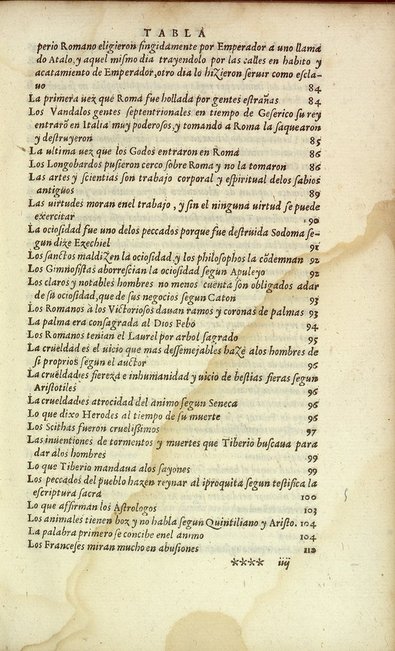 TABLA
perio Romano eligieron fingidamente por Emperador a uno llama
do Atalo, y aquel mismo dia trayendolo por las calles en habito y
acatamiento de Emperador, otro dia lo hizieron seruir como escla-
uo 84
La primera uez que Roma fue hollada por gentes estrañas 84
Los Vandalos gentes septentrionales en tiempo de Geserico su rey
entrarõ en Italia muy poderosos, y tomando a Roma la saquearon
y destruyeron 85
La ultima uez que los Godos entraron en Roma 86
Los Longobardos pusieron cerco sobre Roma y no la tomaron 86
Las artes y scientias son trabajo corporal y espiritual delos sabios
antigüos 89
Las uirtudes moran enel trabajo, y sin el ninguna uirtud se puede
exercitar 90
La ociosidad fue uno delos peccados porque fue destruida Sodoma se-
gun dize Ezechiel 91
Los sanctos maldizen la ociosidad, y los philosophos la cõdemnan 92
Los Gimnosistas aborrescian la ociosidad segun Apuleyo 92
Los claros y notables hombres no menos cuenta son obligados adar
de su ociosidad, que de sus negocios segun Caton 93
Los Romanos a los Victoriosos dauan ramos y coronas de palmas 93
La palma era consagrada al Dios Febo 94
Los Romanos tenian el Laurel por arbol sagrado 95
La crueldad es el uicio que mas dessemejables haze alos hombres de
si proprios segun el auctor 96
La crueldad es fiereza e inhumanidad y uicio de bestias fieras segun
Aristotiles 96
La crueldad es atrocidad del animo segun Seneca 96
Lo que dixo Herodes al tiempo de su muerte 96
Los Scithas fueron cruelissimos 97
Las inuentiones de tormentos y muertes que Tiberio buscaua para
dar alos hombres 99
Lo que Tiberio mandaua alos sayones 99
Los peccados del pueblo hazen reynar al iproquita segun testifica la
escriptura sacra 100
Lo que affirman los Astrologos 103
Los animales tienen boz y no habla segun Quintiliano y Aristo. 104
La palabra primero se concibe enel animo 104
Los Franceses miran mucho en abusiones 112
**** iiij